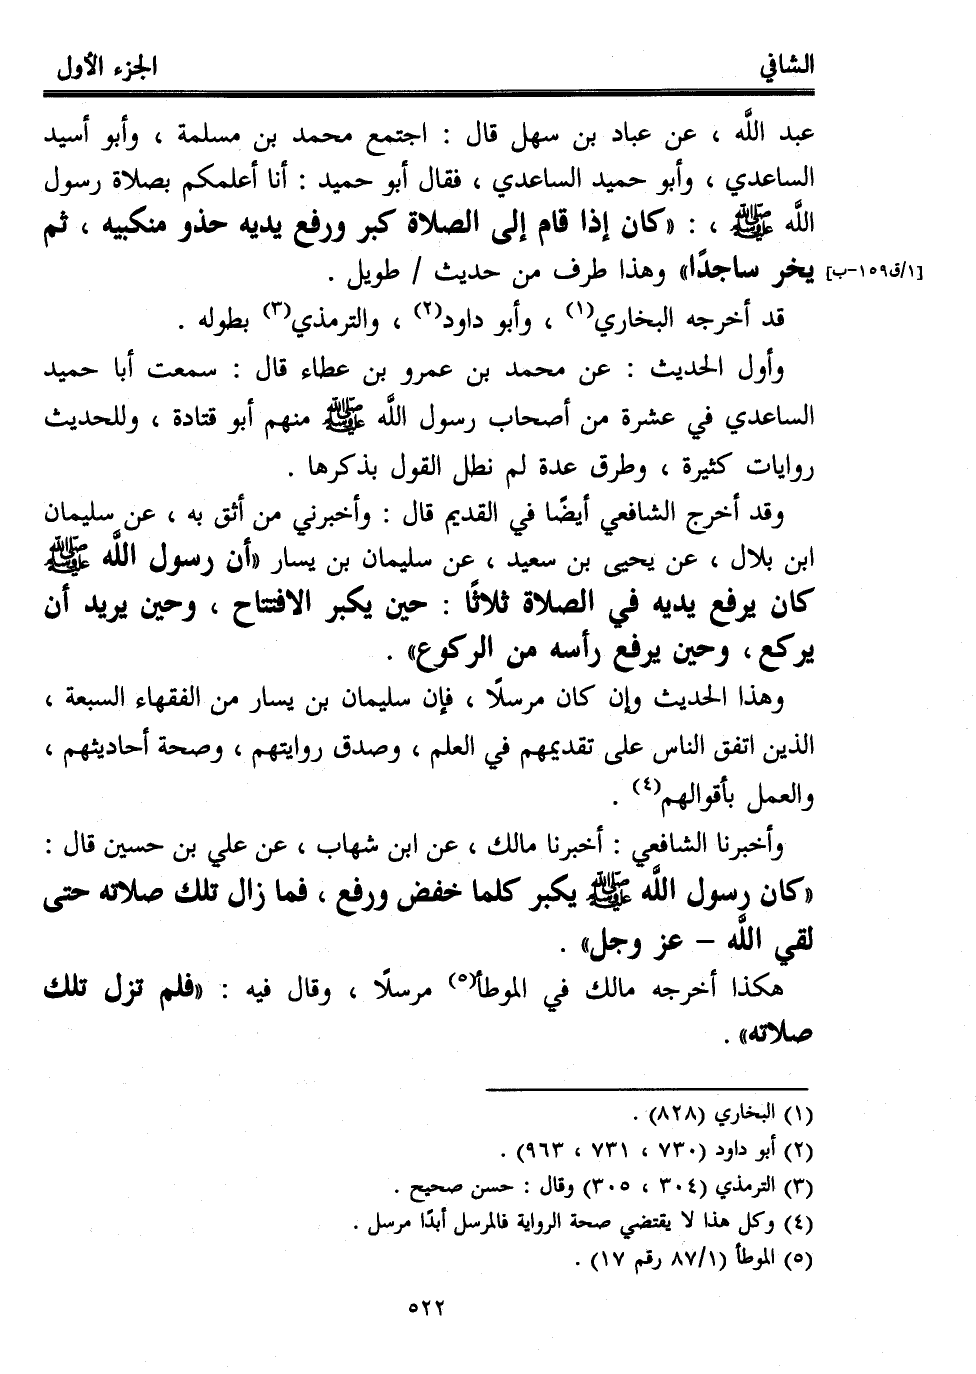 الشافي الجزء الأول
عبد اللَّه ، عن عباد بن سهل قال : اجتمع محمد بن مسلمة ، وأبو أسيد
الساعدي ، وأبو حميد الساعدي ، فقال أبو حميد : أنا أعلمكم بصلاة رسول
اللَّه ﷺ ، : «كان إذا قام إلى الصلاة كبر ورفع يديه حذو منكبيه ، ثم
يخر ساجدًا» وهذا طرف من حديث / طويل . [١/ق١٥٩-ب]
قد أخرجه البخاري(١) ، وأبو داود(٢) ، والترمذي(٣) بطوله .
وأول الحديث : عن محمد بن عمرو بن عطاء قال : سمعت أبا حميد
الساعدي في عشرة من أصحاب رسول اللَّه ﷺ منهم أبو قتادة ، وللحديث
روايات كثيرة ، وطرق عدة لم نطل القول بذكرها .
وقد أخرج الشافعي أيضًا في القديم قال : وأخبرني من أثق به ، عن سليمان
ابن بلال ، عن يحيى بن سعيد ، عن سليمان بن يسار «أن رسول اللَّه ﷺ
كان يرفع يديه في الصلاة ثلاثًا : حين يكبر الافتتاح ، وحين يريد أن
يركع ، وحين يرفع رأسه من الركوع» .
وهذا الحديث وإن كان مرسلًا ، فإن سليمان بن يسار من الفقهاء السبعة ،
الذين اتفق الناس على تقديمهم في العلم ، وصدق روايتهم ، وصحة أحاديثهم ،
والعمل بأقوالهم(٤) .
وأخبرنا الشافعي : أخبرنا مالك ، عن ابن شهاب ، عن علي بن حسين قال :
«كان رسول اللَّه ﷺ يكبر كلما خفض ورفع ، فما زال تلك صلاته حتى
لقي اللَّه – عز وجل» .
هكذا أخرجه مالك في الموطأ(٥) مرسلًا ، وقال فيه : «فلم تزل تلك
صلاته» .
(١) البخاري (٨٢٨) .
(٢) أبو داود (٧٣٠ ، ٧٣١ ، ٩٦٣) .
(٣) الترمذي (٣٠٤ ، ٣٠٥) وقال : حسن صحيح .
(٤) وكل هذا لا يقتضي صحة الرواية فالمرسل أبدًا مرسل .
(٥) الموطأ (٨٧/١ رقم ١٧) .
٥٢٢